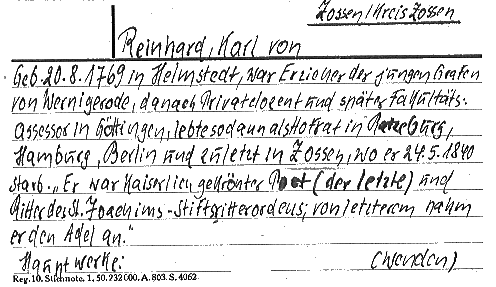 Zossen/Kreis Zossen
Reinhard, Karl von
Geb. 20.8.1769 in Helmstedt, war Erzieher der jungen Grafen
von Wernigerode, danach Privatdozent und später Fakultäts-
assessor in Göttingen, lebte sodann als Hofrat in Ratzeburg,
Hamburg, Berlin und zuletzt in Zossen, wo er 24.5.1840
starb. „Er war Kaiserlich gekrönter Poet (der letzte) und
Ritter des St. Joachims-Stiftsritterordens; von letzterem nahm
er den Adel an."
Hauptwerke: (wenden)
Reg. 10. Stichnote. 1. 50. 232 000. A. 803. S. 4062